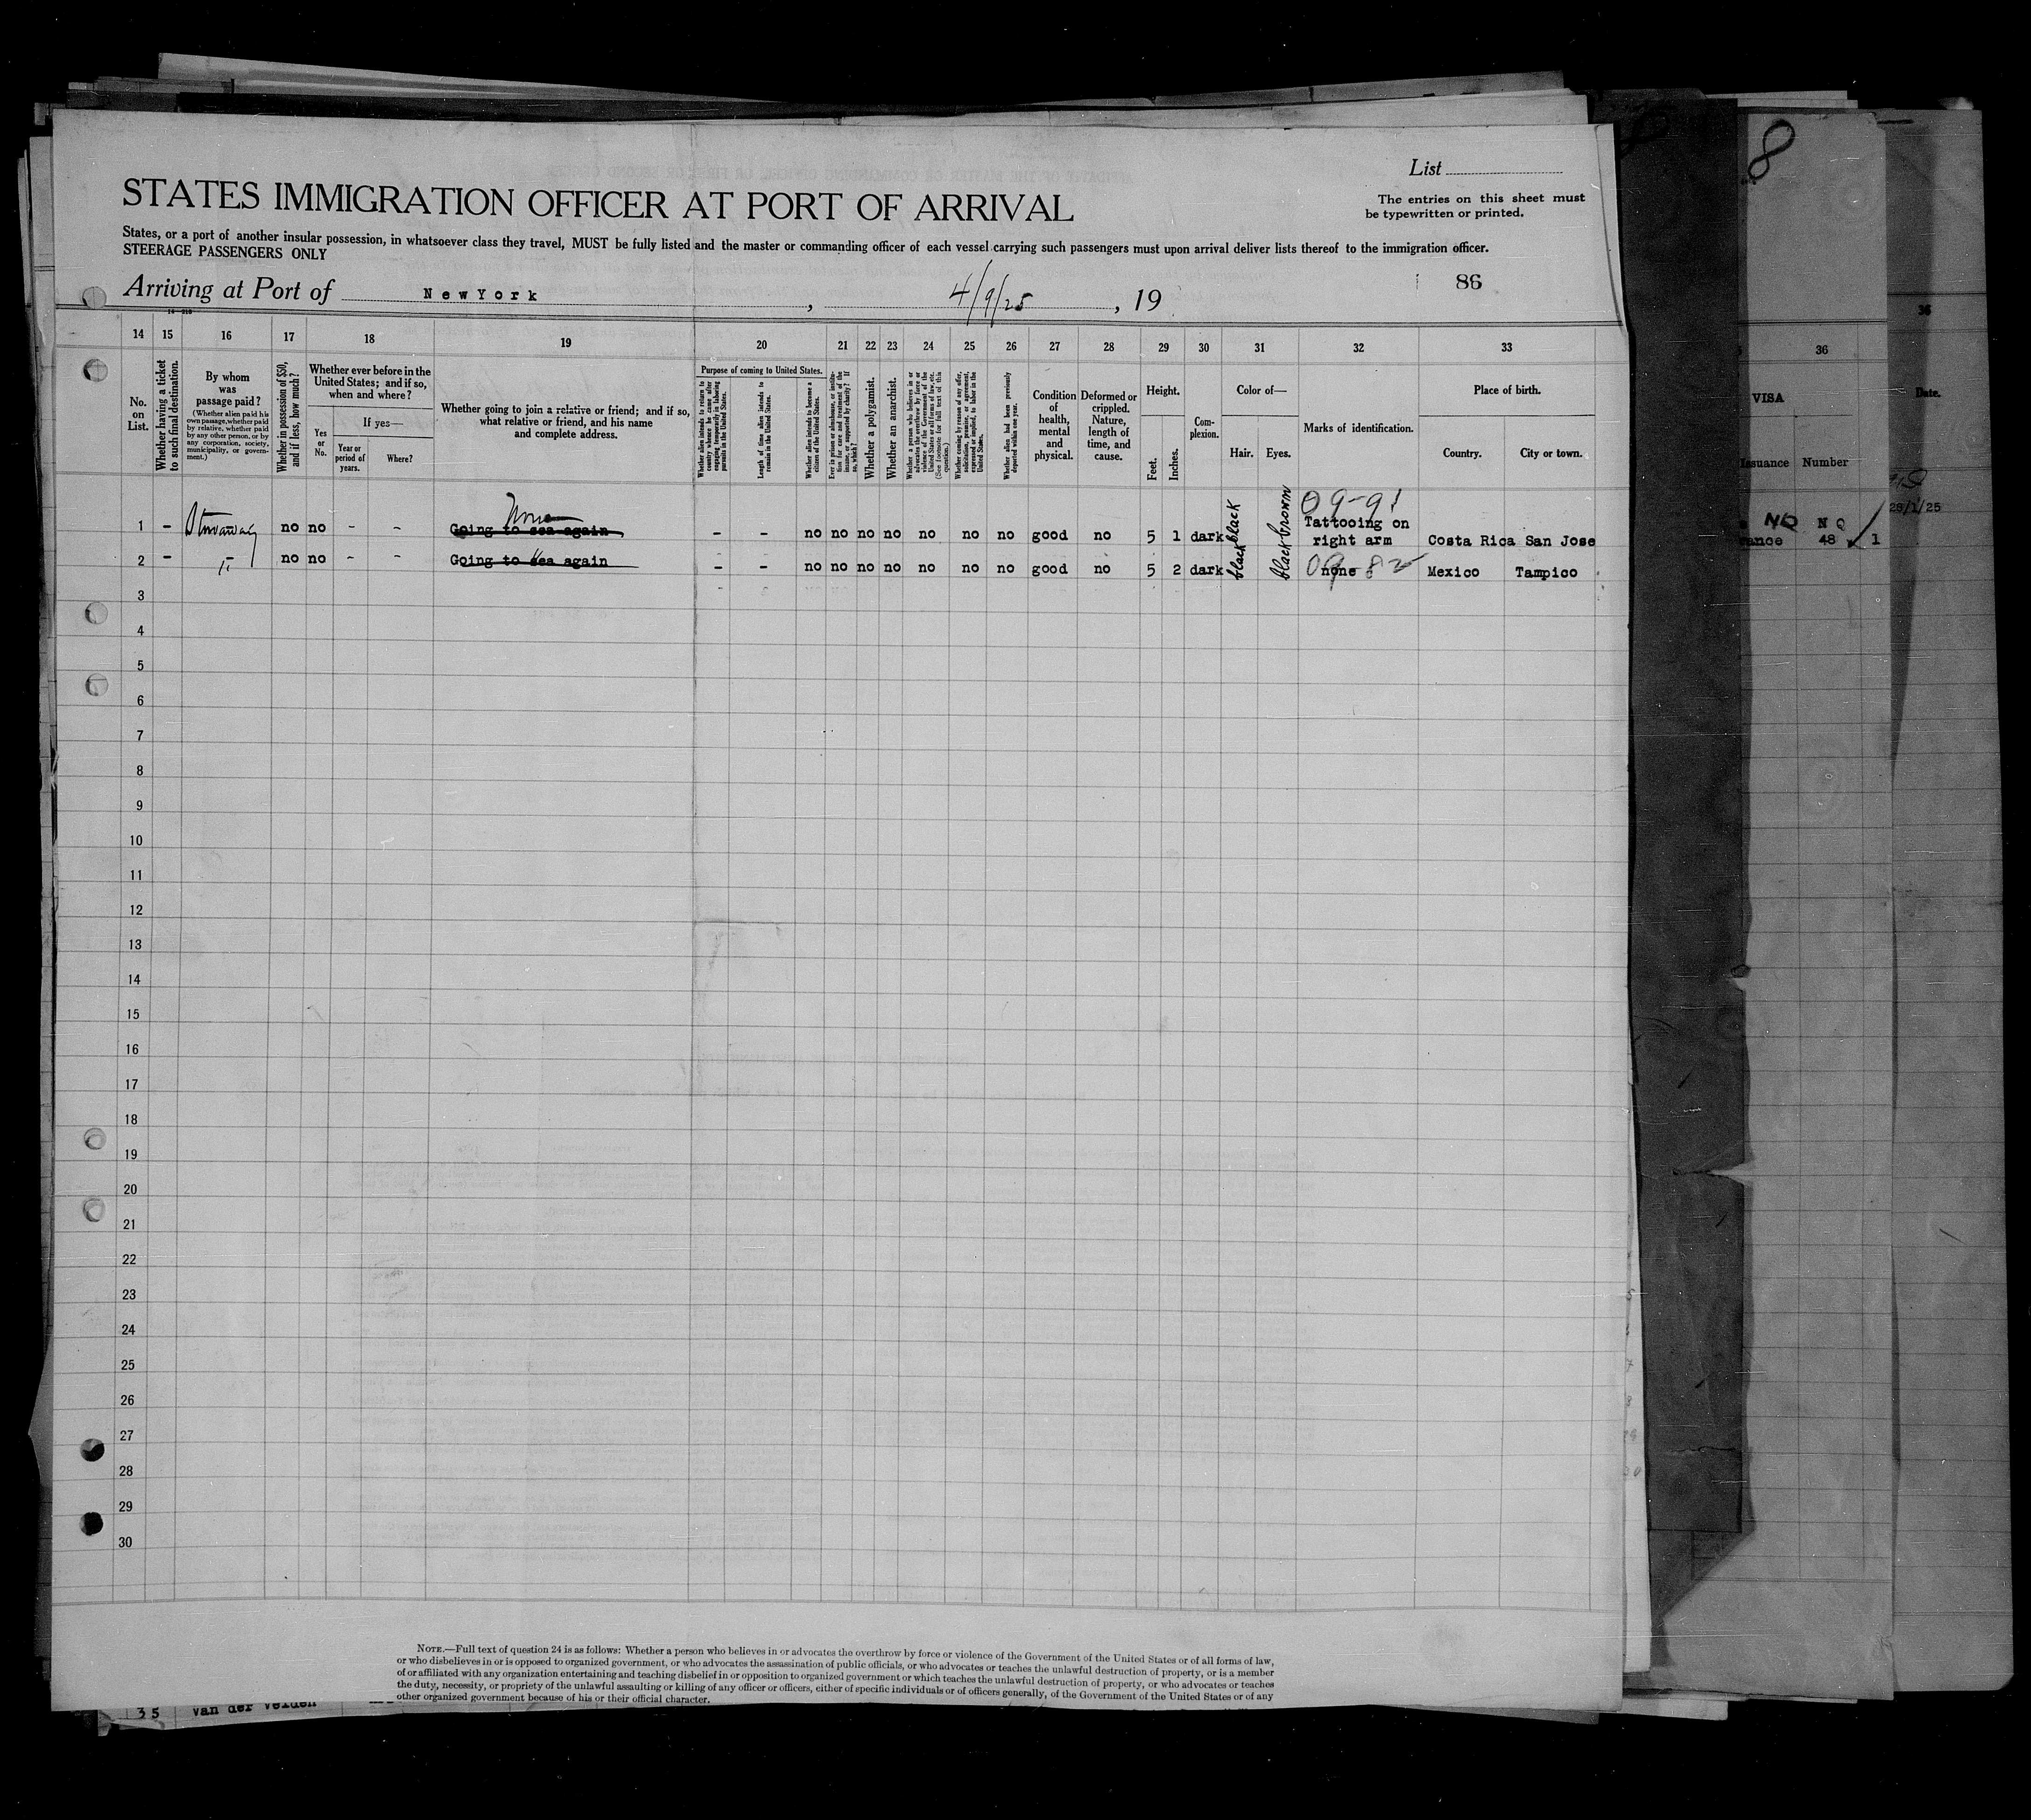 List
STATES IMMIGRATION OFFICER AT PORT OF ARRIVAL
The entries on this sheet must
be typewritten or printed.
States, or a port of another insular possession, in whatsoever class they travel, MUST be fully listed and the master or commanding officer of each vessel carrying such passengers must upon arrival deliver lists thereof to the immigration officer.
STEERAGE PASSENGERS ONLY
Arriving at Port of NewYork , 4/9/25 , 19
86
8
14 15 16 17 18 19 20 21 22 23 24 25 26 27 28 29 30 31 32 33
No. on List.
Whether having a ticket to such final destination.
By whom was passage paid?
(Whether alien paid his own passage, whether paid by relative, whether paid by any other person, or by any corporation, society, municipality, or government.)
Whether in possession of $50, and if less, how much?
Whether ever before in the United States; and if so, when and where?
Yes or No.
If yes—
Year or period of years.
Where?
Whether going to join a relative or friend; and if so, what relative or friend, and his name and complete address.
Purpose of coming to United States.
Whether alien intends to return to country whence he came after engaging temporarily in laboring pursuits in the United States.
Length of time alien intends to remain in the United States.
Whether alien intends to become a citizen of the United States.
Ever in prison or almshouse, or institution for care and treatment of the insane, or supported by charity? If so, which?
Whether a polygamist.
Whether an anarchist.
Whether a person who believes in or advocates the overthrow by force or violence of the Government of the United States or all forms of law, etc. (See footnote for full text of this question.)
Whether coming by reason of any offer, solicitation, promise, or agreement, expressed or implied, to labor in the United States.
Whether alien had been previously deported within one year.
Condition of health, mental and physical.
Deformed or crippled. Nature, length of time, and cause.
Height.
Feet. Inches.
Com-
plexion.
Color of—
Hair. Eyes.
Marks of identification.
Place of birth.
Country. City or town.
1 - Stowaway no no - - None Going to sea again - - no no no no no no no good no 5 1 dark black black 09-91 Tattooing on right arm Costa Rica San Jose
2 - " no no - - Going to sea again - - no no no no no no no good no 5 2 dark black brown none Mexico Tampico
3
4
5
6
7
8
9
10
11
12
13
14
15
16
17
18
19
20
21
22
23
24
25
26
27
28
29
30
NOTE.—Full text of question 24 is as follows: Whether a person who believes in or advocates the overthrow by force or violence of the Government of the United States or of all forms of law,
or who disbelieves in or is opposed to organized government, or who advocates the assassination of public officials, or who advocates or teaches the unlawful destruction of property, or is a member
of or affiliated with any organization entertaining and teaching disbelief in or opposition to organized government or which teaches the unlawful destruction of property, or who advocates or teaches
the duty, necessity, or propriety of the unlawful assaulting or killing of any officer or officers, either of specific individuals or of officers generally, of the Government of the United States or of any
other organized government because of his or their official character.
35 van der Velden
36
VISA
Issuance Number
NO N Q
rance 48 1
36
Date.
28/1/25